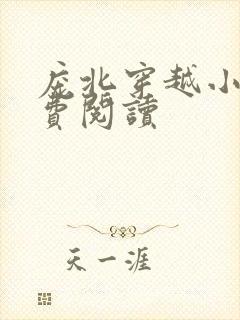 庇北穿越小
費閱讀
天一涯